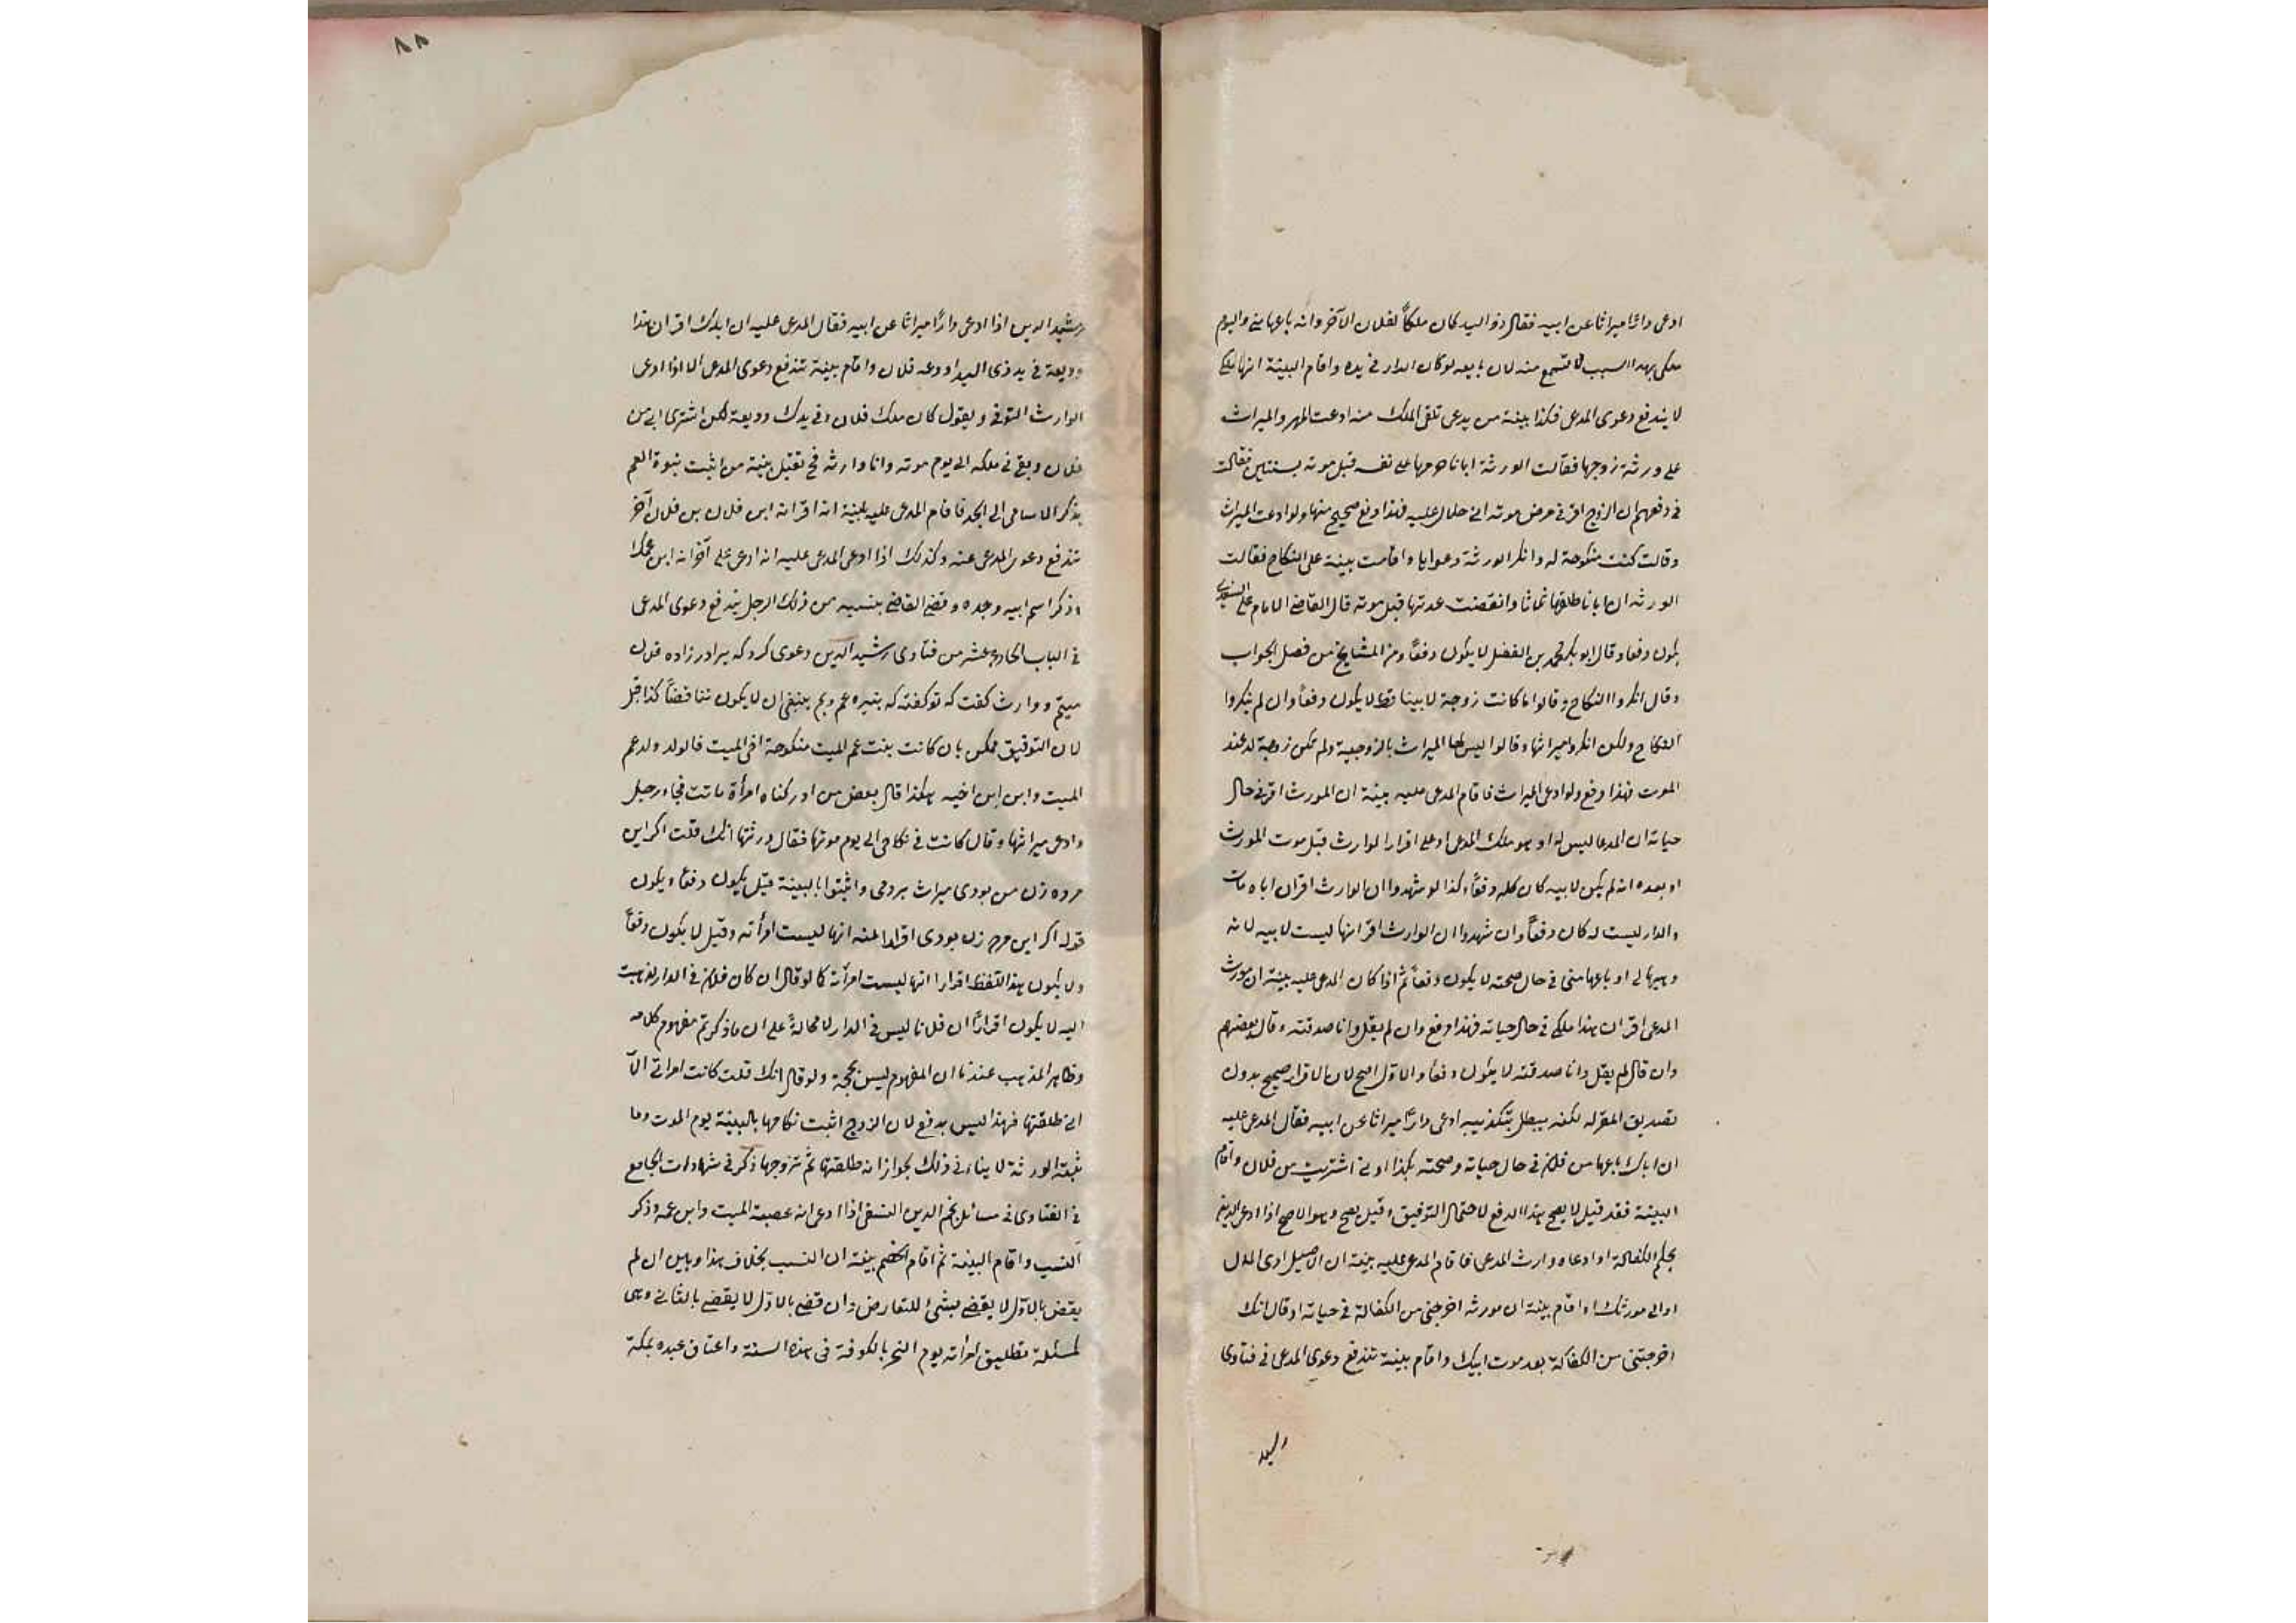 ادعى دارا ميراثا عن ابيه فقال ذو اليد كان ملكاً لفلان الآخر وانه باعها منى واليوم
ملكى بهذا السبب لا تسمع منه لان بايعه لو كان الدار فى يده واقام البينة انها ملكى
لا يندفع دعوى المدعى فكذا بينة من يدعى تلقى الملك منه ادعت المهر والميراث
على ورثة زوجها فقالت الورثة ابانا حرمها على نفسه قبل موته بسنتين فقالت
فى دفعهم ان الزوج اقر فى مرض موته انى حلال عليه فهذا دفع صحيح منها ولو ادعت الميراث
وقالت كنت منكوحة له وانكر الورثة دعواها واقامت بينة على النكاح فقالت
الورثة ان ابانا طلقها ثلاثا وانقضت عدتها قبل موته قال القاضى الامام على السغدى
يكون دفعا وقال ابو بكر محمد بن الفضل لا يكون دفعاً ومن المشايخ من فصل الجواب
وقال انكروا النكاح وقالوا ما كانت زوجة لابينا قط لا يكون دفعاً وان لم ينكروا
النكاح ولكن انكروا ميراثها وقالوا ليس لها الميراث بالزوجية ولم تكن زوجة له عند
الموت فهذا دفع ولو ادعى الميراث فاقام المدعى عليه بينة ان المورث اقر فى حال
حياته ان المدعا ليس له او هو ملك المدعى او على اقرار الوارث قبل موت المورث
او بعده انه لم يكن لابيه كان كله دفعاً وكذا لو شهدوا ان الوارث اقر ان اباه مات
والدار ليست له كان دفعاً وان شهدوا ان الوارث اقر انها ليست لابيه لانه
وهبها لى او باعها منى فى حال صحته لا يكون دفعاً ثم اذا كان المدعى عليه بينة ان مورث
المدعى اقر ان هذا ملكى فى حال حياته فهذا دفع وان لم يقل وانا صدقته وقال بعضهم
وان قال لم يقل وانا صدقته لا يكون دفعا والاول اصح لان الاقرار صحيح بدون
تصديق المقر له لكنه يبطل بتكذيبه ادعى داراً ميراثا عن ابيه فقال المدعى عليه
ان اباك باعها من فلان فى حال حياته وصحته بكذا وانى اشتريت من فلان واقام
البينة فقد قيل لا يصح هذا الدفع لاحتمال التوفيق وقيل يصح وهو الاصح اذا ادعى الدين
بحكم الكفالة او ادعاه وارث المدعى فاقام المدعى عليه بينة ان الاصيل ادى المال
او الى مورثك او اقام بينة ان مورثه اخرجنى من الكفالة فى حياته او قال انك
اخرجتنى من الكفالة بعد موت ابيك واقام بينة تندفع دعوى المدعى فى فتاوى
٨٨
رشيد الدين اذا ادعى داراً ميراثا عن ابيه فقال المدعى عليه ان اباك اقر ان هذا
وديعة فى يد ذى اليد اودعه فلان واقام بينة تندفع دعوى المدعى الا اذا ادعى
الوارث التوفى ويقول كان ملك فلان وفى يدك وديعة لكن اشترى ابى من
فلان وبقى فى ملكه الى يوم موته وانا وارثه فح تقبل بينة من اثبت بنوة العم
بذكر الاسامى الى الجد فاقام المدعى عليه بينة انه اقر انه ابن فلان بن فلان آخر
تندفع دعوى المدعى عنه وكذلك اذا ادعى المدعى عليه انه ادعى على آخر انه ابن عمك
وذكر اسم ابيه وجده وقضى القاضى بنسبه من ذلك الرجل يندفع دعوى المدعى
فى الباب الحادى عشر من فتاوى رشيد الدين دعوى كرد كه برادرزاده فلان
ميتم ووارث كفت كه تو كفته كه بنيره عم ويم ينبغى ان لا يكون تناقضاً كذا قيل
لان التوفيق ممكن بان كانت بنت عم الميت منكوحة اخى الميت فالولد ولد عم
الميت وابن ابن اخيه هكذا قال بعض من ادركناه امرأة ماتت فجاء رجل
وادعى ميراثها وقال كانت فى نكاحى الى يوم موتها فقال ورثتها انك قلت اكر اين
مرده زن من بودى ميراث بردمى واثبتوا بالبينة قيل يكون دفعا ويكون
قوله اكر اين مرده زن بودى اقرارا منه انها ليست امرأته وقيل لا يكون دفعاً
ولا يكون بهذا اللفظ اقرارا انها ليست امرأته كما لو قال ان كان فلان فى الدار لذهبت
اليه لا يكون اقراراً ان فلانا ليس فى الدار لا محالةً على ان ما ذكرتم مفهوم كلامه
وظاهر المذهب عندنا ان المفهوم ليس بحجة ولو قال انك قلت كانت امراتى الا
انى طلقتها فهذا ليس بدفع لان الزوج اثبت نكاحها بالبينة يوم الموت وما
ثبته الورثة لا ينافى ذلك لجواز انه طلقتها ثم تزوجها ذكر فى شهادات الجامع
فى الفتاوى فى مسائل نجم الدين النسفى اذا ادعى انه عصبة الميت وابن عمه وذكر
النسب واقام البينة ثم اقام الخصم بينة ان النسب بخلاف هذا وبين ان لم
يقض بالاول لا يقضى بشئ للتعارض وان قضى بالاول لا يقضى بالثانى وهى
كمسئلة تطليق امراته يوم النحر بالكوفة فى هذه السنة واعتاق عبده بمكة